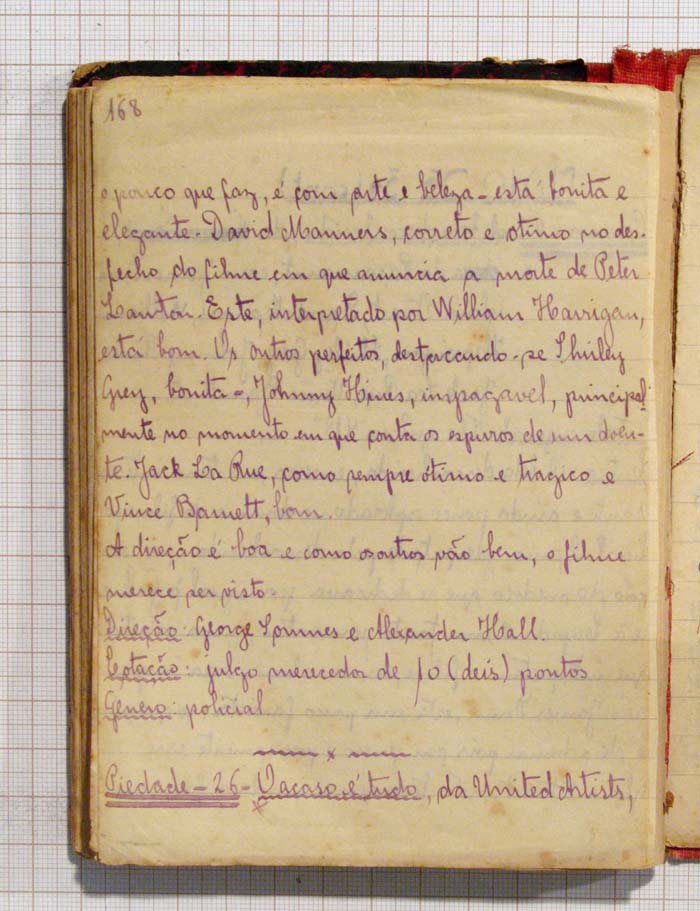 168
o pouco que faz, é com arte e beleza - está bonita e
elegante. David Manners, correto e otimo no des-
fecho do filme em que anuncia a morte de Peter
Lawton. Este, interpretado por William Harrigan,
está bom. Os outros perfeitos, destacando-se Shirley
Grey, bonita -, Johnny Hines, impagavel, principal
mente no momento em que conta os espirros de um doen-
te. Jack La Rue, como sempre ótimo e tragico e
Vince Barnett, bom.
A direção é boa e como os outros vão bem, o filme
merece ser visto.
Direção: George Somnes e Alexander Hall.
Cotação: julgo merecedor de 10 (deis) pontos
Género: policial
x
Piedade - 26 - O acaso é tudo, da United Artists,